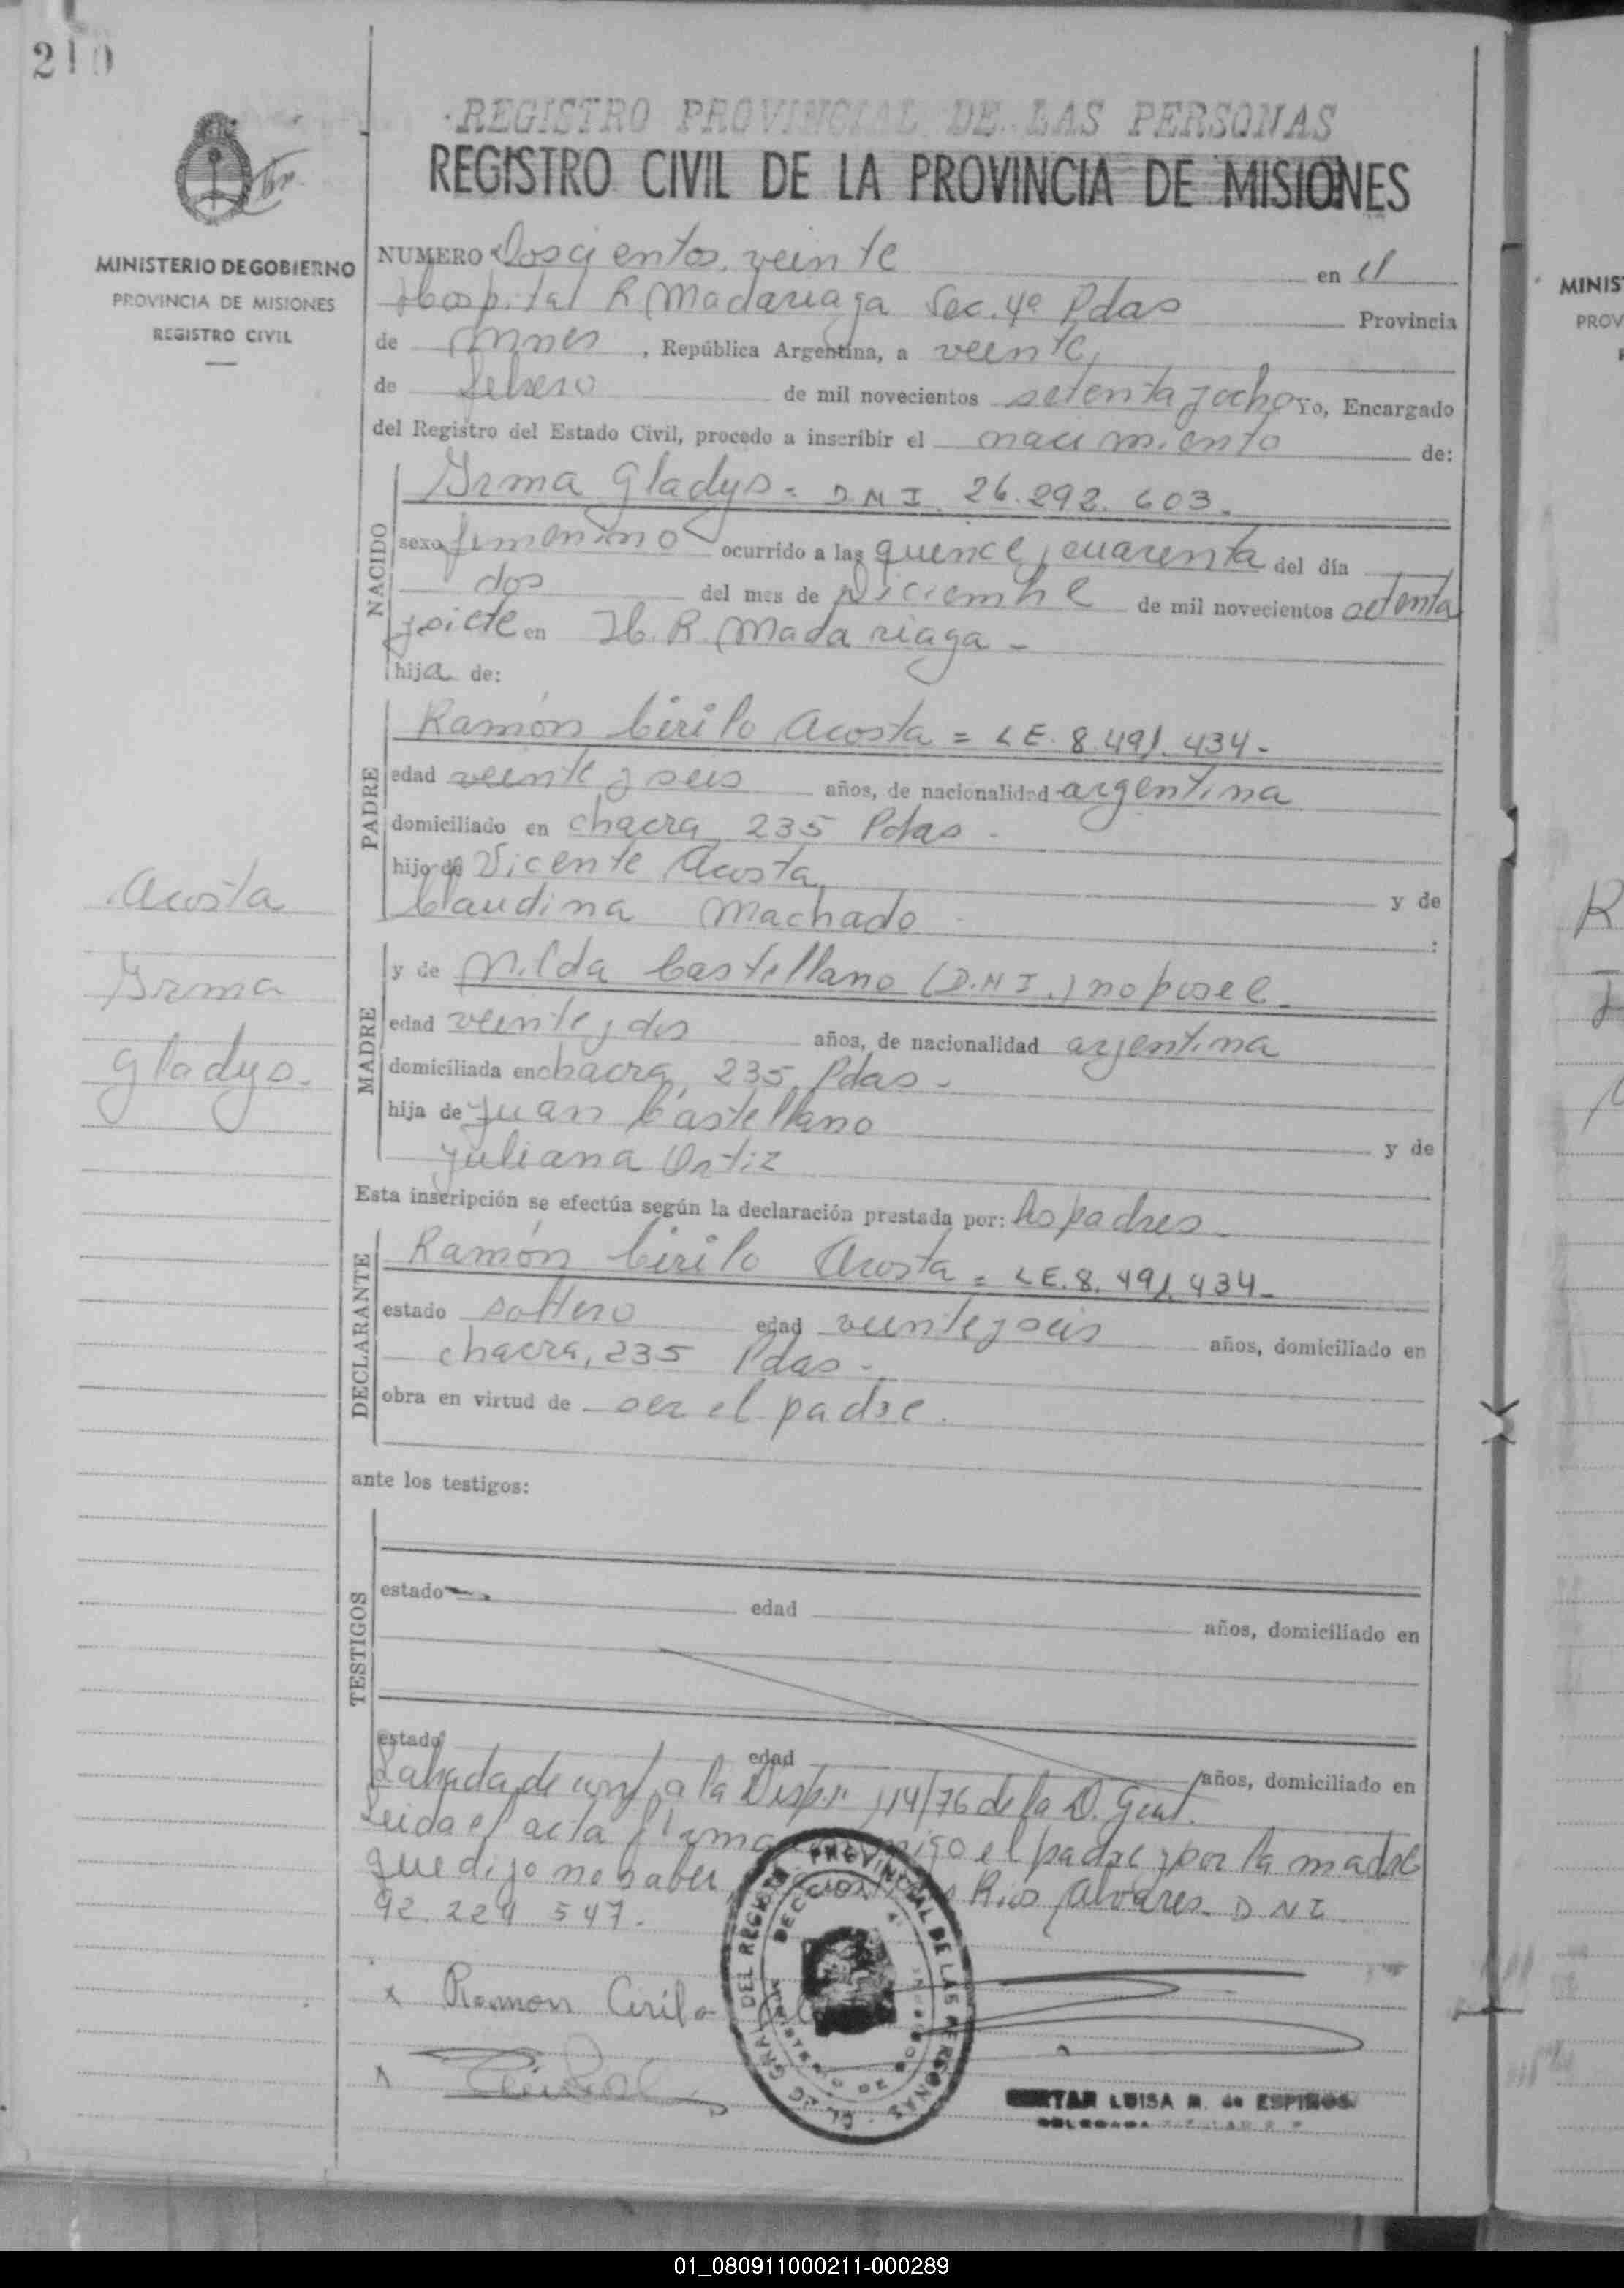 210
REGISTRO PROVINCIAL DE LAS PERSONAS
REGISTRO CIVIL DE LA PROVINCIA DE MISIONES
MINISTERIO DE GOBIERNO
PROVINCIA DE MISIONES
REGISTRO CIVIL
NUMERO Doscientos veinte en el
Hospital R Madariaga Sec. 4ª Pdas Provincia
de Mnes, República Argentina, a veinte
de febrero de mil novecientos setenta y ocho Yo, Encargado
del Registro del Estado Civil, procedo a inscribir el nacimiento de:
NACIDO
Irma Gladys = D.N.I. 26.292.603.
sexo femenino ocurrido a las quince y cuarenta del día
dos del mes de Diciembre de mil novecientos setenta
y siete en H. R. Madariaga -
hija de:
PADRE
Ramón Cirilo Acosta = L.E. 8.491.434-
edad veinte y seis años, de nacionalidad argentina
domiciliado en chacra 235 Pdas -
hijo de Vicente Acosta y de
Claudina Machado :
MADRE
y de Nilda Castellano (D.N.I.) no posee -
edad veinte y dos años, de nacionalidad argentina
domiciliada en chacra 235, Pdas -
hija de Juan Castellano y de
Juliana Ortiz
Acosta
Irma
Gladys.
Esta inscripción se efectúa según la declaración prestada por: los padres -
DECLARANTE
Ramón Cirilo Acosta = L.E. 8.491.434-
estado soltero edad veinte y seis años, domiciliado en
chacra, 235 Pdas -
obra en virtud de ser el padre.
ante los testigos:
TESTIGOS
estado edad años, domiciliado en
estado edad años, domiciliado en
Labrada de conf. a la Dispn 114/76 de la D. Gral.
Leida el acta firma conmigo el padre y por la madre
que dijo no saber Rios Alvares - D N I
92.224.547.
x Ramon Cirilo
DEL REGISTRO PROVINCIAL DE LAS PERSONAS
LUISA M. de ESPINOSA
MINIS
PROV
01_080911000211-000289